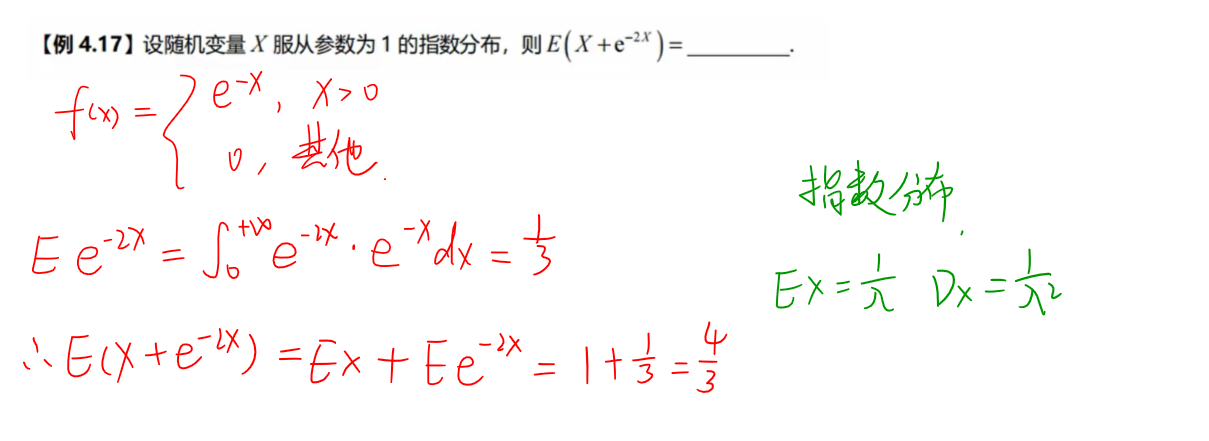 【例 4.17】设随机变量 X 服从参数为 1 的指数分布，则 E(X+e^{-2X})=________.
f(x) = { e^{-x}, x>0
0, 其他.
E e^{-2X} = ∫_0^{+∞} e^{-2x} · e^{-x} dx = 1/3
∴ E(X+e^{-2X}) = EX + E e^{-2X} = 1 + 1/3 = 4/3
指数分布.
EX = 1/λ DX = 1/λ²